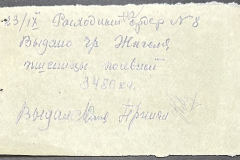 23/IX Расходный ордер N 8
Выдано гр. Жигеля
пшеницы посевной
3480 кг.
Выдал